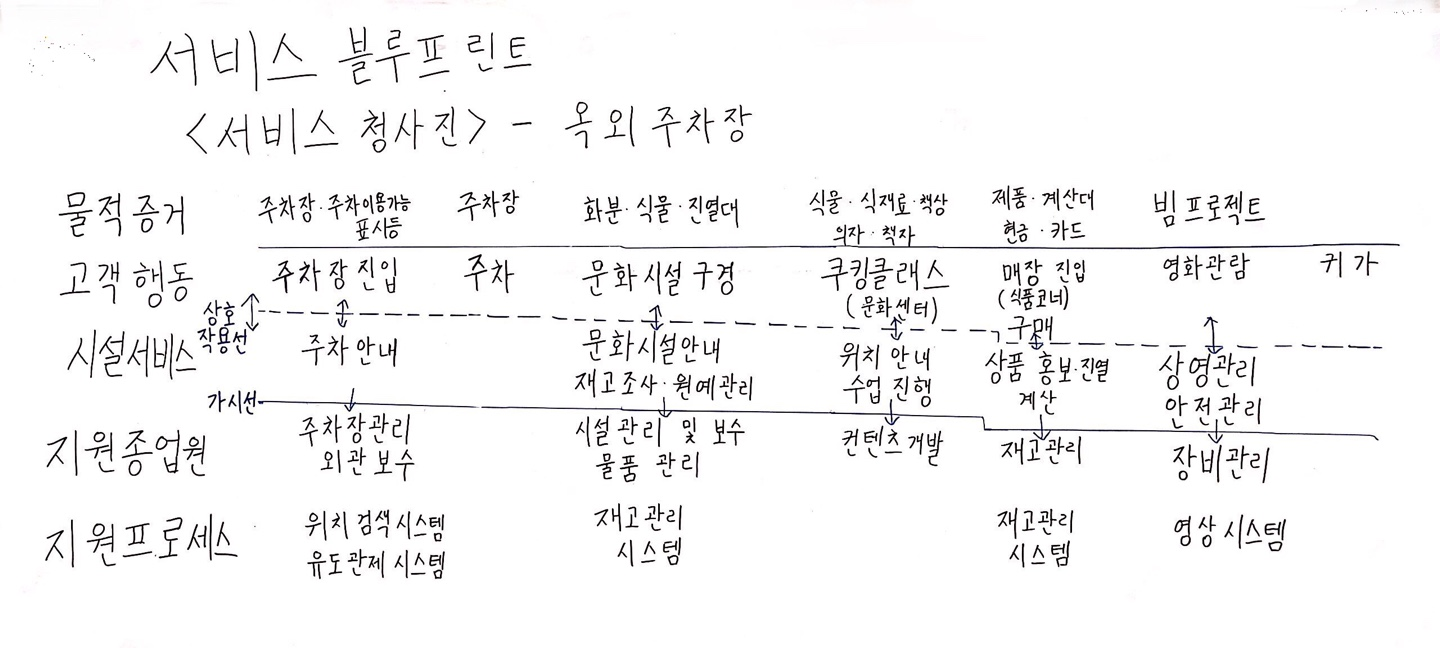 서비스 블루프린트
<서비스 청사진> - 옥외주차장
물적증거 주차장·주차이용가능 표시등 주차장 화분·식물·진열대 식물·식재료·책상 의자·책자 제품·계산대 현금·카드 빔프로젝트
고객행동 주차장진입 주차 문화시설 구경 쿠킹클래스 (문화센터) 매장 진입 (식품코너) 구매 영화관람 귀가
상호작용선
시설서비스 주차안내 문화시설안내 재고조사·원예관리 위치안내 수업진행 상품 홍보·진열 계산 상영관리 안전관리
가시선
지원종업원 주차장관리 외관보수 시설관리 및 보수 물품 관리 컨텐츠개발 재고관리 장비관리
지원프로세스 위치검색시스템 유도관제시스템 재고관리 시스템 재고관리 시스템 영상시스템